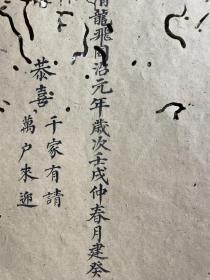 清龍飛同治元年歲次壬戌仲春月建癸
千家有請
恭喜
萬户來迎